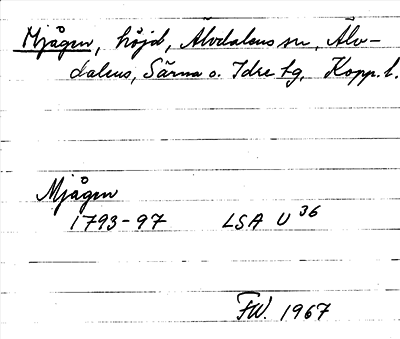 Mjågen, höjd, Älvdalens sn, Älv-
dalens, Särna o. Idre tg, Kopp. l.
Mjågen
1793-97 LSA U 36
FW. 1967